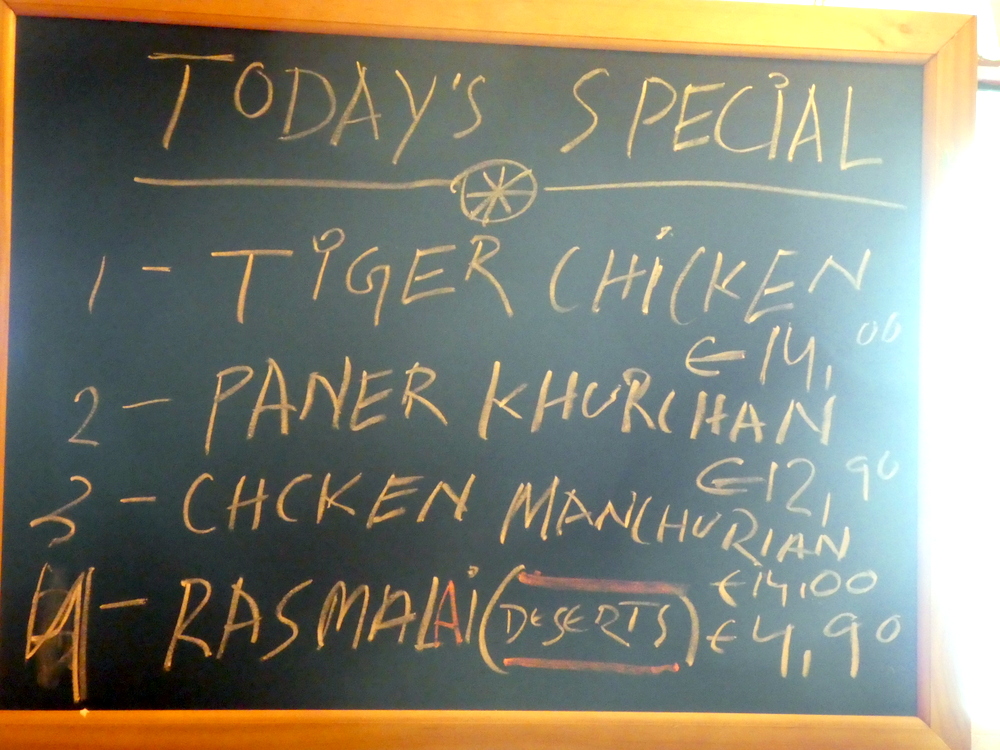 TODAY'S SPECIAL
1 - TIGER CHICKEN
€ 14,00
2 - PANER KHURCHAN
€12,90
3 - CHCKEN MANCHURIAN
€14,00
4 - RASMALAI (DESERTS) €4,90